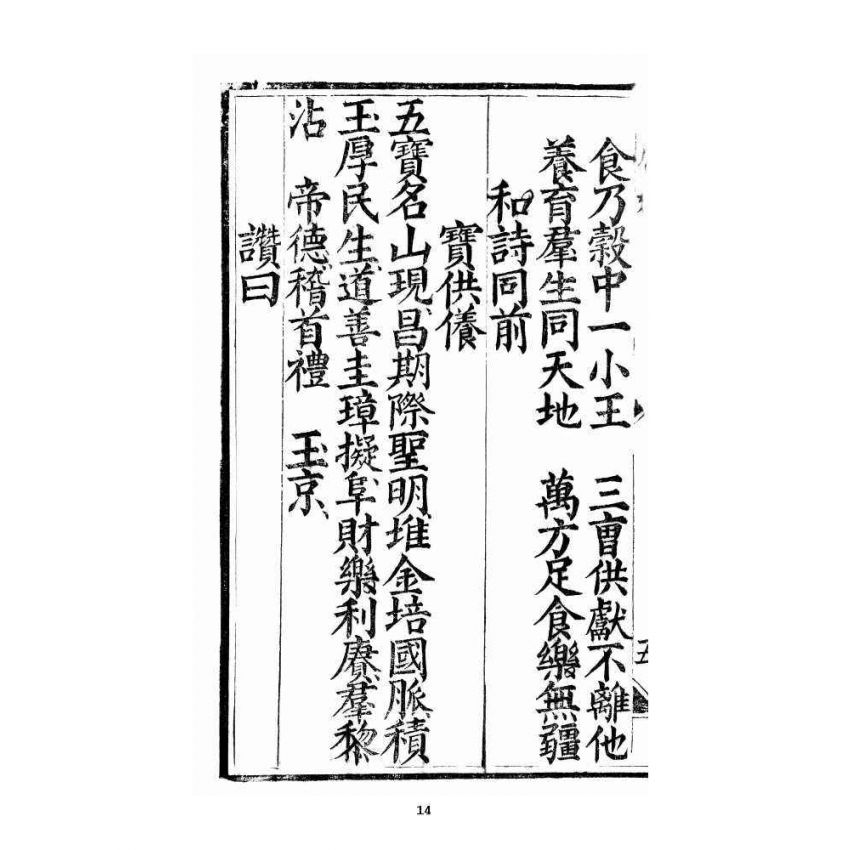 食乃穀中一小王　三曺供獻不離他
養育羣生同天地　萬方足食樂無疆
和詩同前
寶供養
五寶名山現、昌期際聖明、堆金培國脈、積
玉厚民生、道善圭璋擬、阜財樂利賡、羣黎
沾　帝德、稽首禮　玉京、
讚曰
14